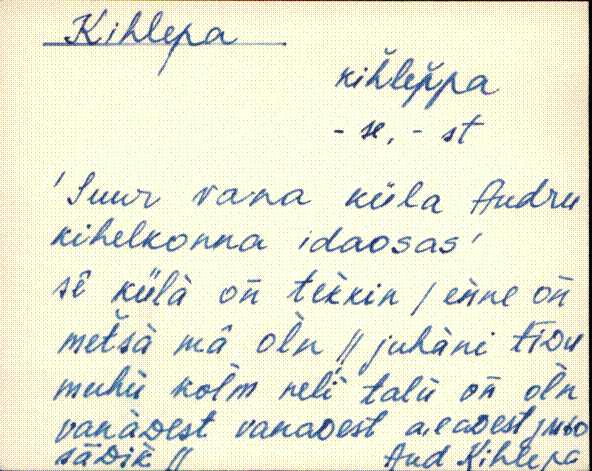 Kihlepa
kiȟlep̌pa
- se, - st
'Suur vana küla Audru
kihelkonna idaosas'
sê külà oǹ tekkin / enne oǹ
metsà mâ olǹ // juhàni tiDu
muhù kolm̀ nelì talù oǹ olǹ
vanàDest vanaDest a,eaDest
Aud Kihlepa